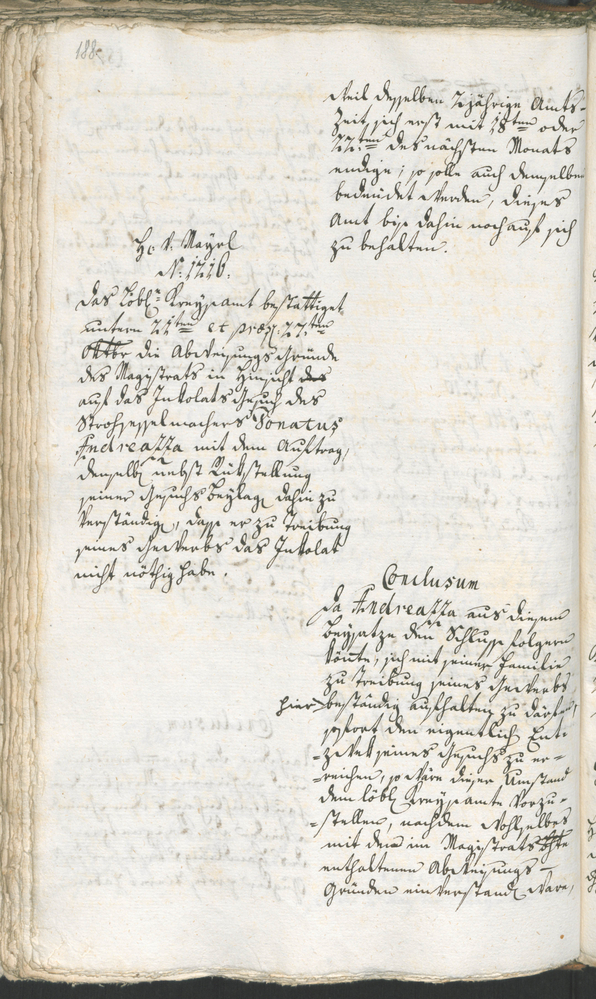 188.
weil desselben 2 jährige Amts-
zeit sich erst mit 18ten oder
22.ten des nächsten Monats
endige; so solle auch demselben
bedeudet werden, dieses
Amt bis dahin noch auf sich
zu behalten.
H. v. Mayrl
N: 1216.
Das Löbl: Kreysamt bestättiget
unterm 22ten et præs. 27.ten
Oktbr die Abweisungs Gründe
des Magistrats in Hinsicht des
auf das Inkolats Gesuch des
Strohsesselmachers Donatus
Andreazza mit dem Auftrag,
denselb nebst Rükstellung
seiner Gesuchs Beylage dahin zu
verständig, dass er zu Treibung
seines Gewerbs das Inkolat
nicht nöthig habe.
Conclusum
Da Andreazza aus diesem
Beysatze den Schluss folgern
könte, sich mit seiner Familie
zu Treibung seines Gewerbs
hier beständig aufhalten zu därfen,
sofort den eigentlich End-
=zwek seines Gesuchs zu er=
=reichen, so wäre dieser Umstand
dem löbl Kreysamte vorzu=
=stellen, nachdem Wohlselbes
mit den im Magistrats
enthaltenen Abweisungs-
Gründen einverstand ware,